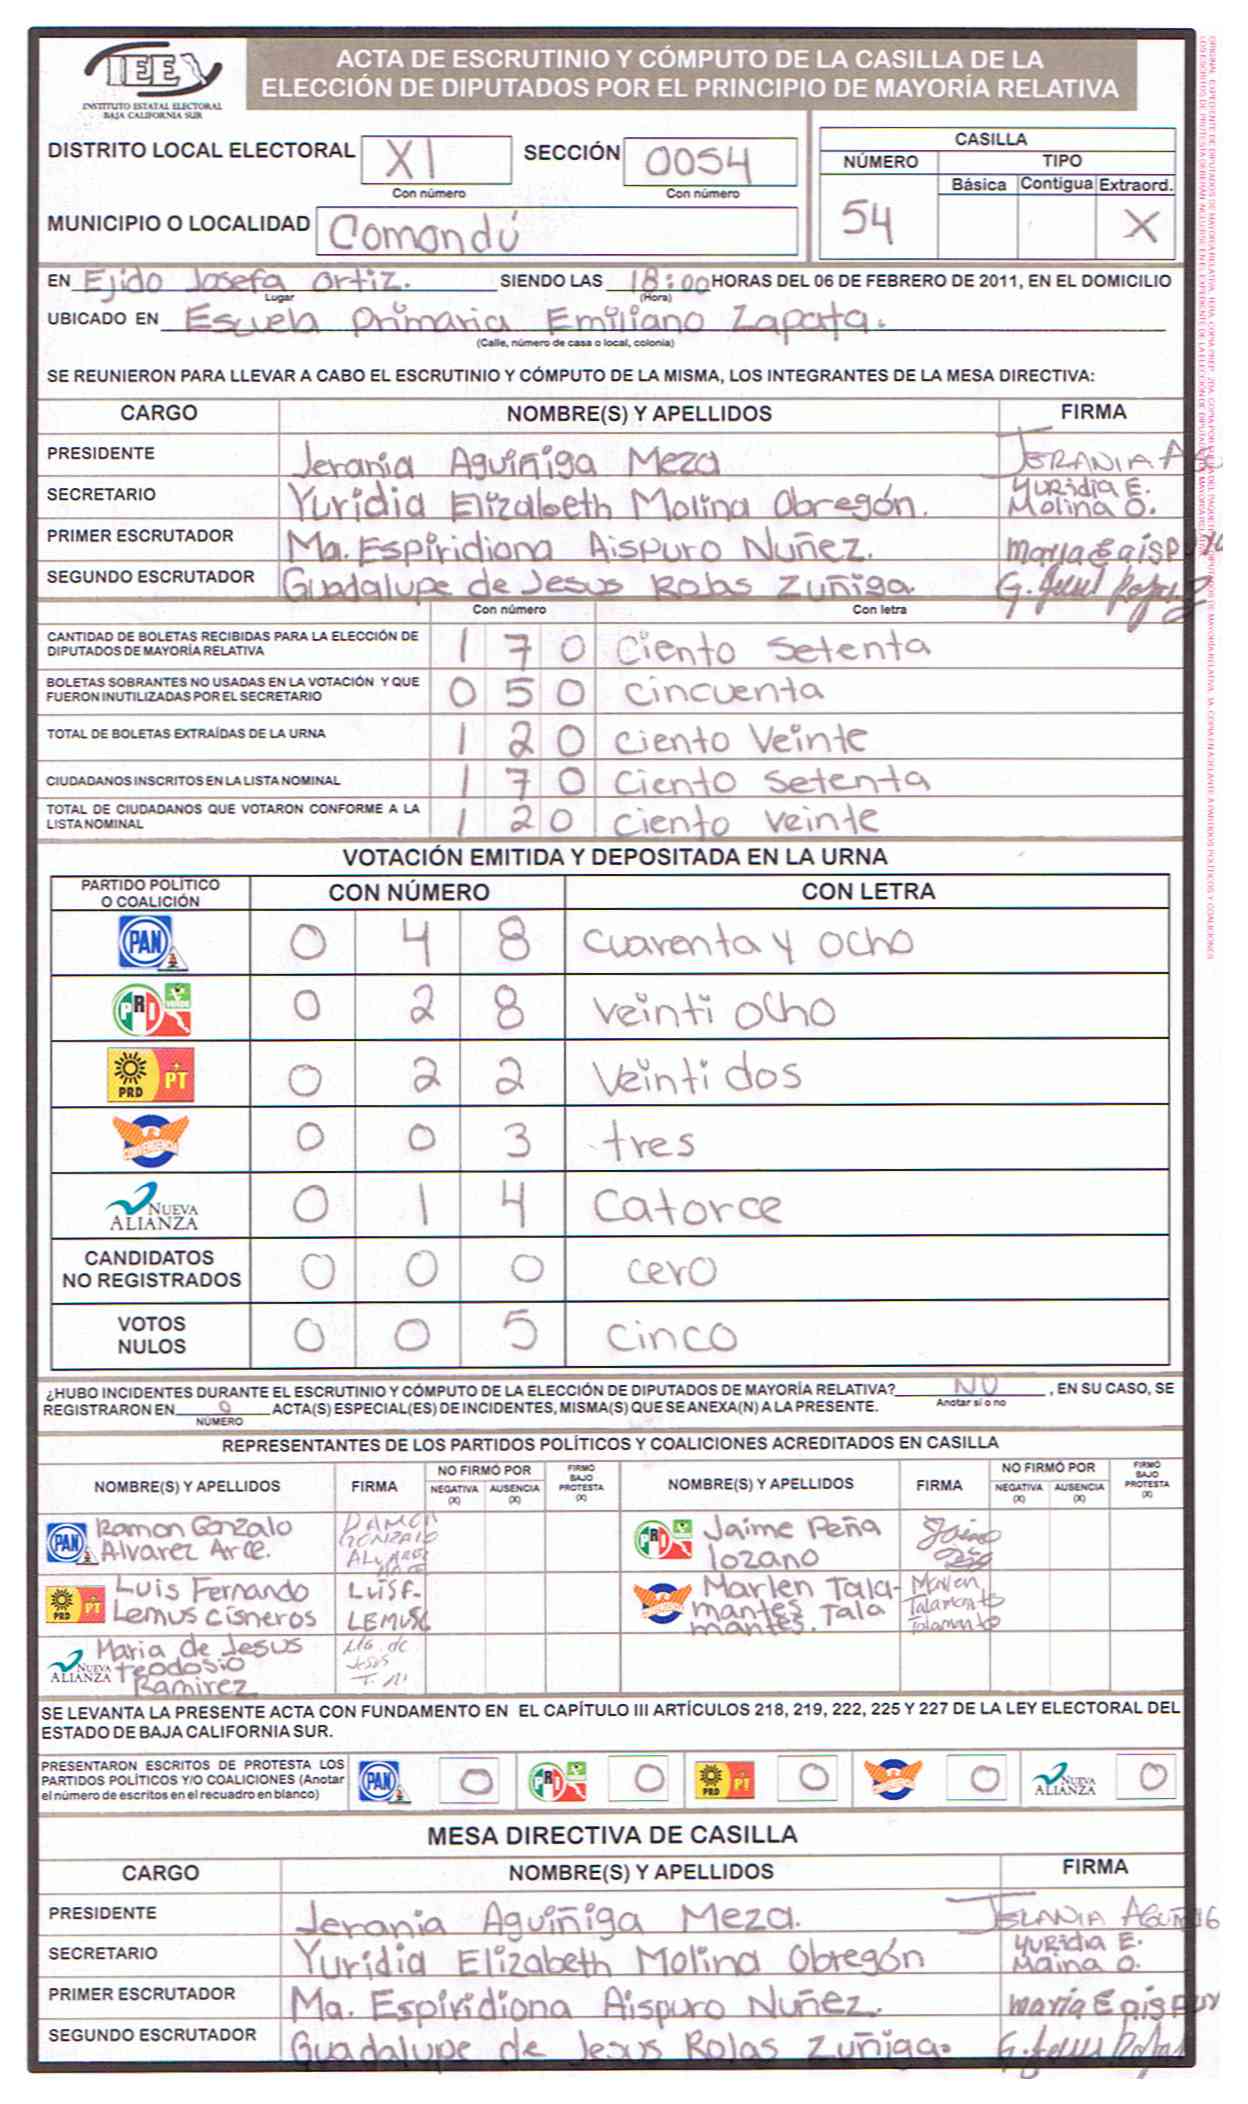 IEE
INSTITUTO ESTATAL ELECTORAL
BAJA CALIFORNIA SUR
ACTA DE ESCRUTINIO Y CÓMPUTO DE LA CASILLA DE LA
ELECCIÓN DE DIPUTADOS POR EL PRINCIPIO DE MAYORÍA RELATIVA
DISTRITO LOCAL ELECTORAL XI SECCIÓN 0054
Con número Con número
MUNICIPIO O LOCALIDAD Comondú
CASILLA
NÚMERO TIPO
Básica Contigua Extraord.
54 X
EN Ejido Josefa Ortiz. SIENDO LAS 18:00 HORAS DEL 06 DE FEBRERO DE 2011, EN EL DOMICILIO
Lugar (Hora)
UBICADO EN Escuela Primaria Emiliano Zapata.
(Calle, número de casa o local, colonia)
SE REUNIERON PARA LLEVAR A CABO EL ESCRUTINIO Y CÓMPUTO DE LA MISMA, LOS INTEGRANTES DE LA MESA DIRECTIVA:
CARGO NOMBRE(S) Y APELLIDOS FIRMA
PRESIDENTE Jerania Aguiñiga Meza JERANIA A
SECRETARIO Yuridia Elizabeth Molina Obregón. Yuridia E. Molina O.
PRIMER ESCRUTADOR Ma. Espiridiona Aispuro Nuñez. maria E aispuro
SEGUNDO ESCRUTADOR Guadalupe de Jesus Rojas Zuñiga. G. Jesus Rojas Z
Con número Con letra
CANTIDAD DE BOLETAS RECIBIDAS PARA LA ELECCIÓN DE
DIPUTADOS DE MAYORÍA RELATIVA 1 7 0 Ciento Setenta
BOLETAS SOBRANTES NO USADAS EN LA VOTACIÓN Y QUE
FUERON INUTILIZADAS POR EL SECRETARIO 0 5 0 cincuenta
TOTAL DE BOLETAS EXTRAÍDAS DE LA URNA 1 2 0 Ciento Veinte
CIUDADANOS INSCRITOS EN LA LISTA NOMINAL 1 7 0 Ciento Setenta
TOTAL DE CIUDADANOS QUE VOTARON CONFORME A LA
LISTA NOMINAL 1 2 0 ciento veinte
VOTACIÓN EMITIDA Y DEPOSITADA EN LA URNA
PARTIDO POLÍTICO
O COALICIÓN CON NÚMERO CON LETRA
PAN 0 4 8 cuarenta y ocho
PRI 0 2 8 veinti ocho
PRD PT 0 2 2 Veinti dos
CONVERGENCIA 0 0 3 tres
NUEVA ALIANZA 0 1 4 Catorce
CANDIDATOS
NO REGISTRADOS 0 0 0 cero
VOTOS
NULOS 0 0 5 cinco
¿HUBO INCIDENTES DURANTE EL ESCRUTINIO Y CÓMPUTO DE LA ELECCIÓN DE DIPUTADOS DE MAYORÍA RELATIVA? NO , EN SU CASO, SE
Anotar si o no
REGISTRARON EN 0 ACTA(S) ESPECIAL(ES) DE INCIDENTES, MISMA(S) QUE SE ANEXA(N) A LA PRESENTE.
NÚMERO
REPRESENTANTES DE LOS PARTIDOS POLÍTICOS Y COALICIONES ACREDITADOS EN CASILLA
NOMBRE(S) Y APELLIDOS FIRMA NO FIRMÓ POR NEGATIVA (X) AUSENCIA (X) FIRMÓ BAJO PROTESTA (X) NOMBRE(S) Y APELLIDOS FIRMA NO FIRMÓ POR NEGATIVA (X) AUSENCIA (X) FIRMÓ BAJO PROTESTA (X)
PAN Ramon Gonzalo Alvarez Arce. PRI Jaime Peña lozano
PRD PT Luis Fernando Lemus Cisneros LUIS F. LEMUS C CONVERGENCIA Marlen Talamantes Talamantes. Marlen Talamantes Talamantes
NUEVA ALIANZA Maria de Jesus teodosio Ramirez Ma. de Jesus T.
SE LEVANTA LA PRESENTE ACTA CON FUNDAMENTO EN EL CAPÍTULO III ARTÍCULOS 218, 219, 222, 225 Y 227 DE LA LEY ELECTORAL DEL
ESTADO DE BAJA CALIFORNIA SUR.
PRESENTARON ESCRITOS DE PROTESTA LOS
PARTIDOS POLÍTICOS Y/O COALICIONES (Anotar
el número de escritos en el recuadro en blanco)
PAN 0 PRI 0 PRD PT 0 CONVERGENCIA 0 NUEVA ALIANZA 0
MESA DIRECTIVA DE CASILLA
CARGO NOMBRE(S) Y APELLIDOS FIRMA
PRESIDENTE Jerania Aguiñiga Meza. JERANIA AGUIÑIG
SECRETARIO Yuridia Elizabeth Molina Obregón Yuridia E. Molina O.
PRIMER ESCRUTADOR Ma. Espiridiona Aispuro Nuñez. maria E aispur
SEGUNDO ESCRUTADOR Guadalupe de Jesus Rojas Zuñiga. G. Jesus Rojas